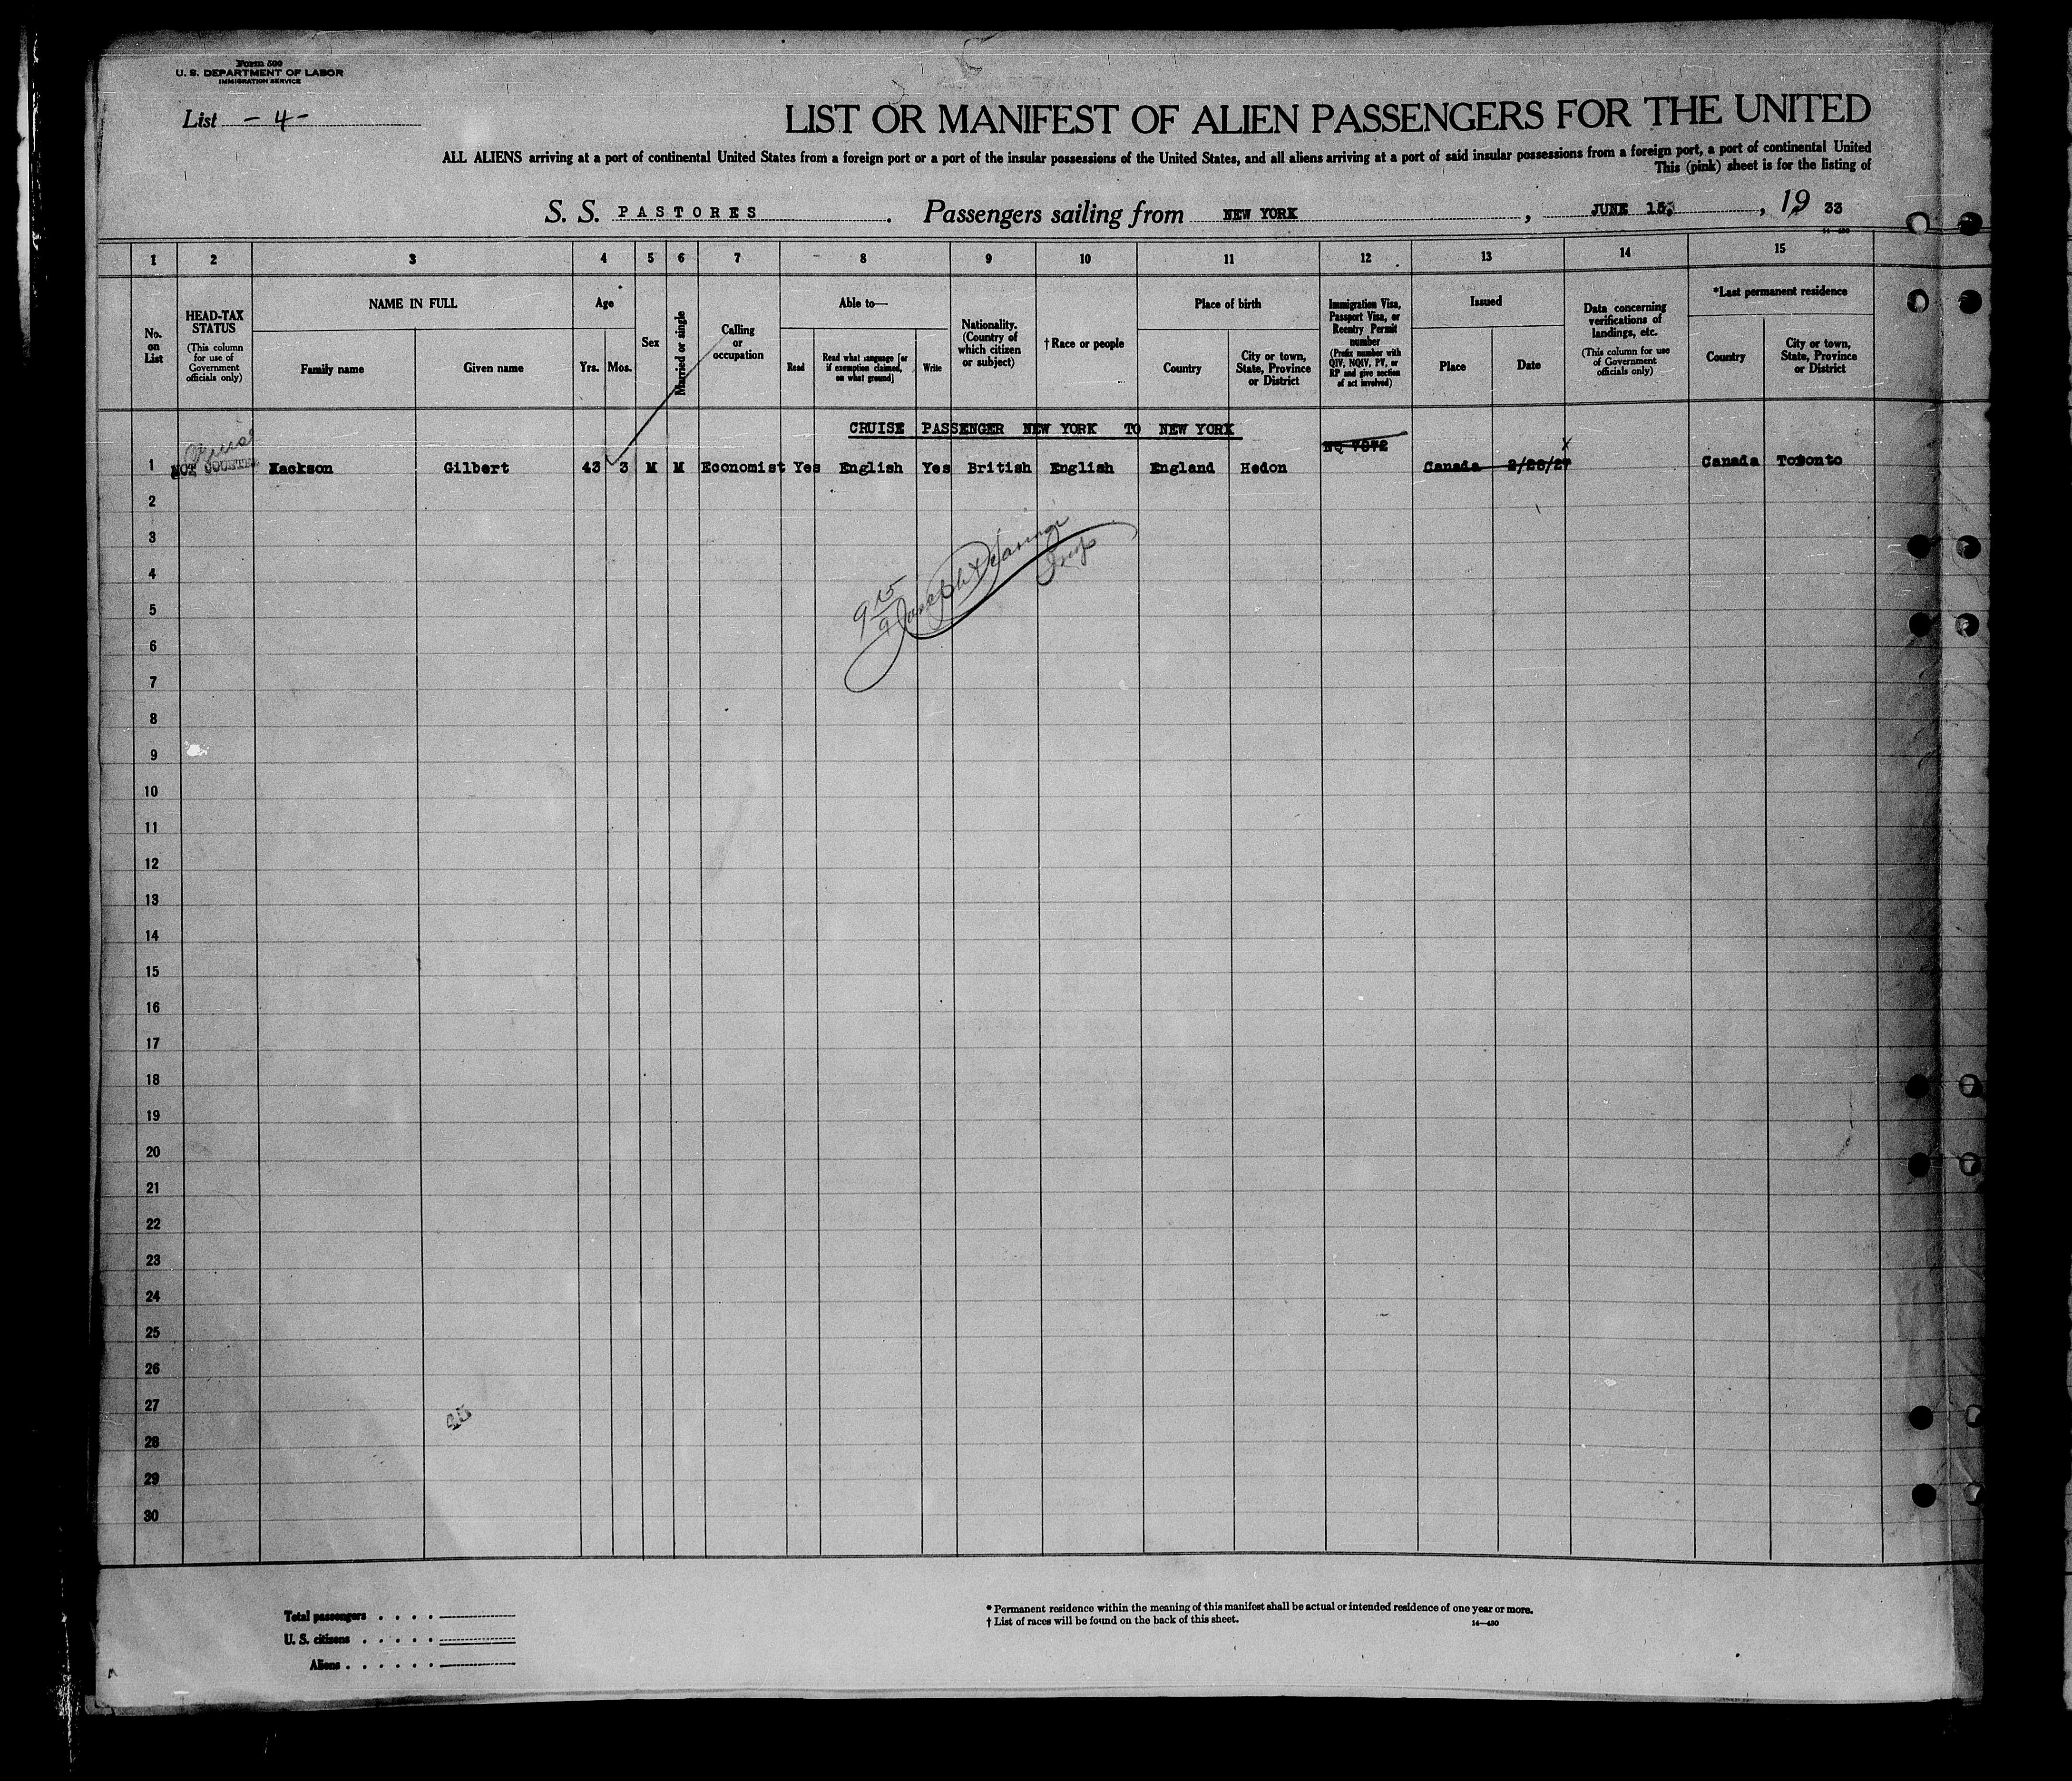 Form 500
U. S. DEPARTMENT OF LABOR
IMMIGRATION SERVICE
List - 4 -
LIST OR MANIFEST OF ALIEN PASSENGERS FOR THE UNITED
ALL ALIENS arriving at a port of continental United States from a foreign port or a port of the insular possessions of the United States, and all aliens arriving at a port of said insular possessions from a foreign port, a port of continental United
This (pink) sheet is for the listing of
S. S. PASTORES . Passengers sailing from NEW YORK , JUNE 15, , 19 33
14—430
1 2 3 4 5 6 7 8 9 10 11 12 13 14 15
No. on List
HEAD-TAX STATUS
(This column for use of Government officials only)
NAME IN FULL
Family name Given name
Age
Yrs. Mos.
Sex
Married or single
Calling or occupation
Able to—
Read
Read what language [or if exemption claimed, on what ground]
Write
Nationality. (Country of which citizen or subject)
† Race or people
Place of birth
Country
City or town, State, Province or District
Immigration Visa, Passport Visa, or Reentry Permit number
(Prefix number with QIV, NQIV, PV, or RP and give section of act involved)
Issued
Place Date
Data concerning verifications of landings, etc.
(This column for use of Government officials only)
*Last permanent residence
Country
City or town, State, Province or District
CRUISE PASSENGER NEW YORK TO NEW YORK
NQ 7072
1 NOT COUNTED Kackson Gilbert 43 3 M M Economist Yes English Yes British English England Hedon Canada 2/28/27 Canada Toronto
2
3
4
5
6
7
8
9
10
11
12
13
14
15
16
17
18
19
20
21
22
23
24
25
26
27
28
29
30
Total passengers . . . .
U. S. citizens . . . . .
Aliens . . . . . .
* Permanent residence within the meaning of this manifest shall be actual or intended residence of one year or more.
† List of races will be found on the back of this sheet.
14—430